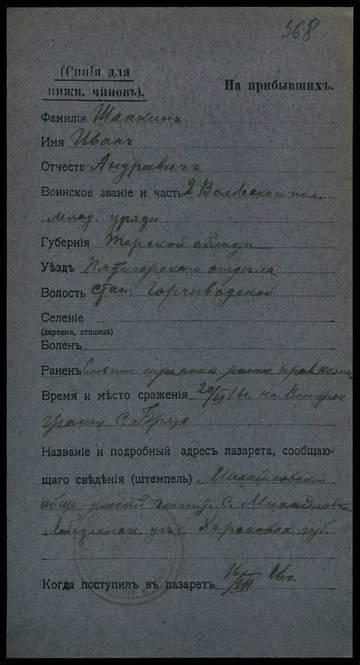 368
(Синія для
нижн. чиновъ).
На прибывшихъ.
Фамилія Шапкинъ
Имя Иванъ
Отчеств Андравичъ
Воинское званіе и часть 2 Волжскаго пол.
млад. уряди
Губернія Терской области
Уѣздъ Пятигорскаго отдѣла
Волость стан. Горчиводской
Селеніе
(деревня, станица)
Боленъ
Раненъ рана прав
Время и мѣсто сраженія 20/ 16 г. на Венгерск
границ с.
Названіе и подробный адресъ лазарета, сообщаю-
щаго свѣдѣнія (штемпель) Михайловскій
обще земскій госпит. С. Михайловка
Лебединск. уѣз. Харьковск. губ.
Когда поступилъ въ лазаретъ 16/VIII 16 г.